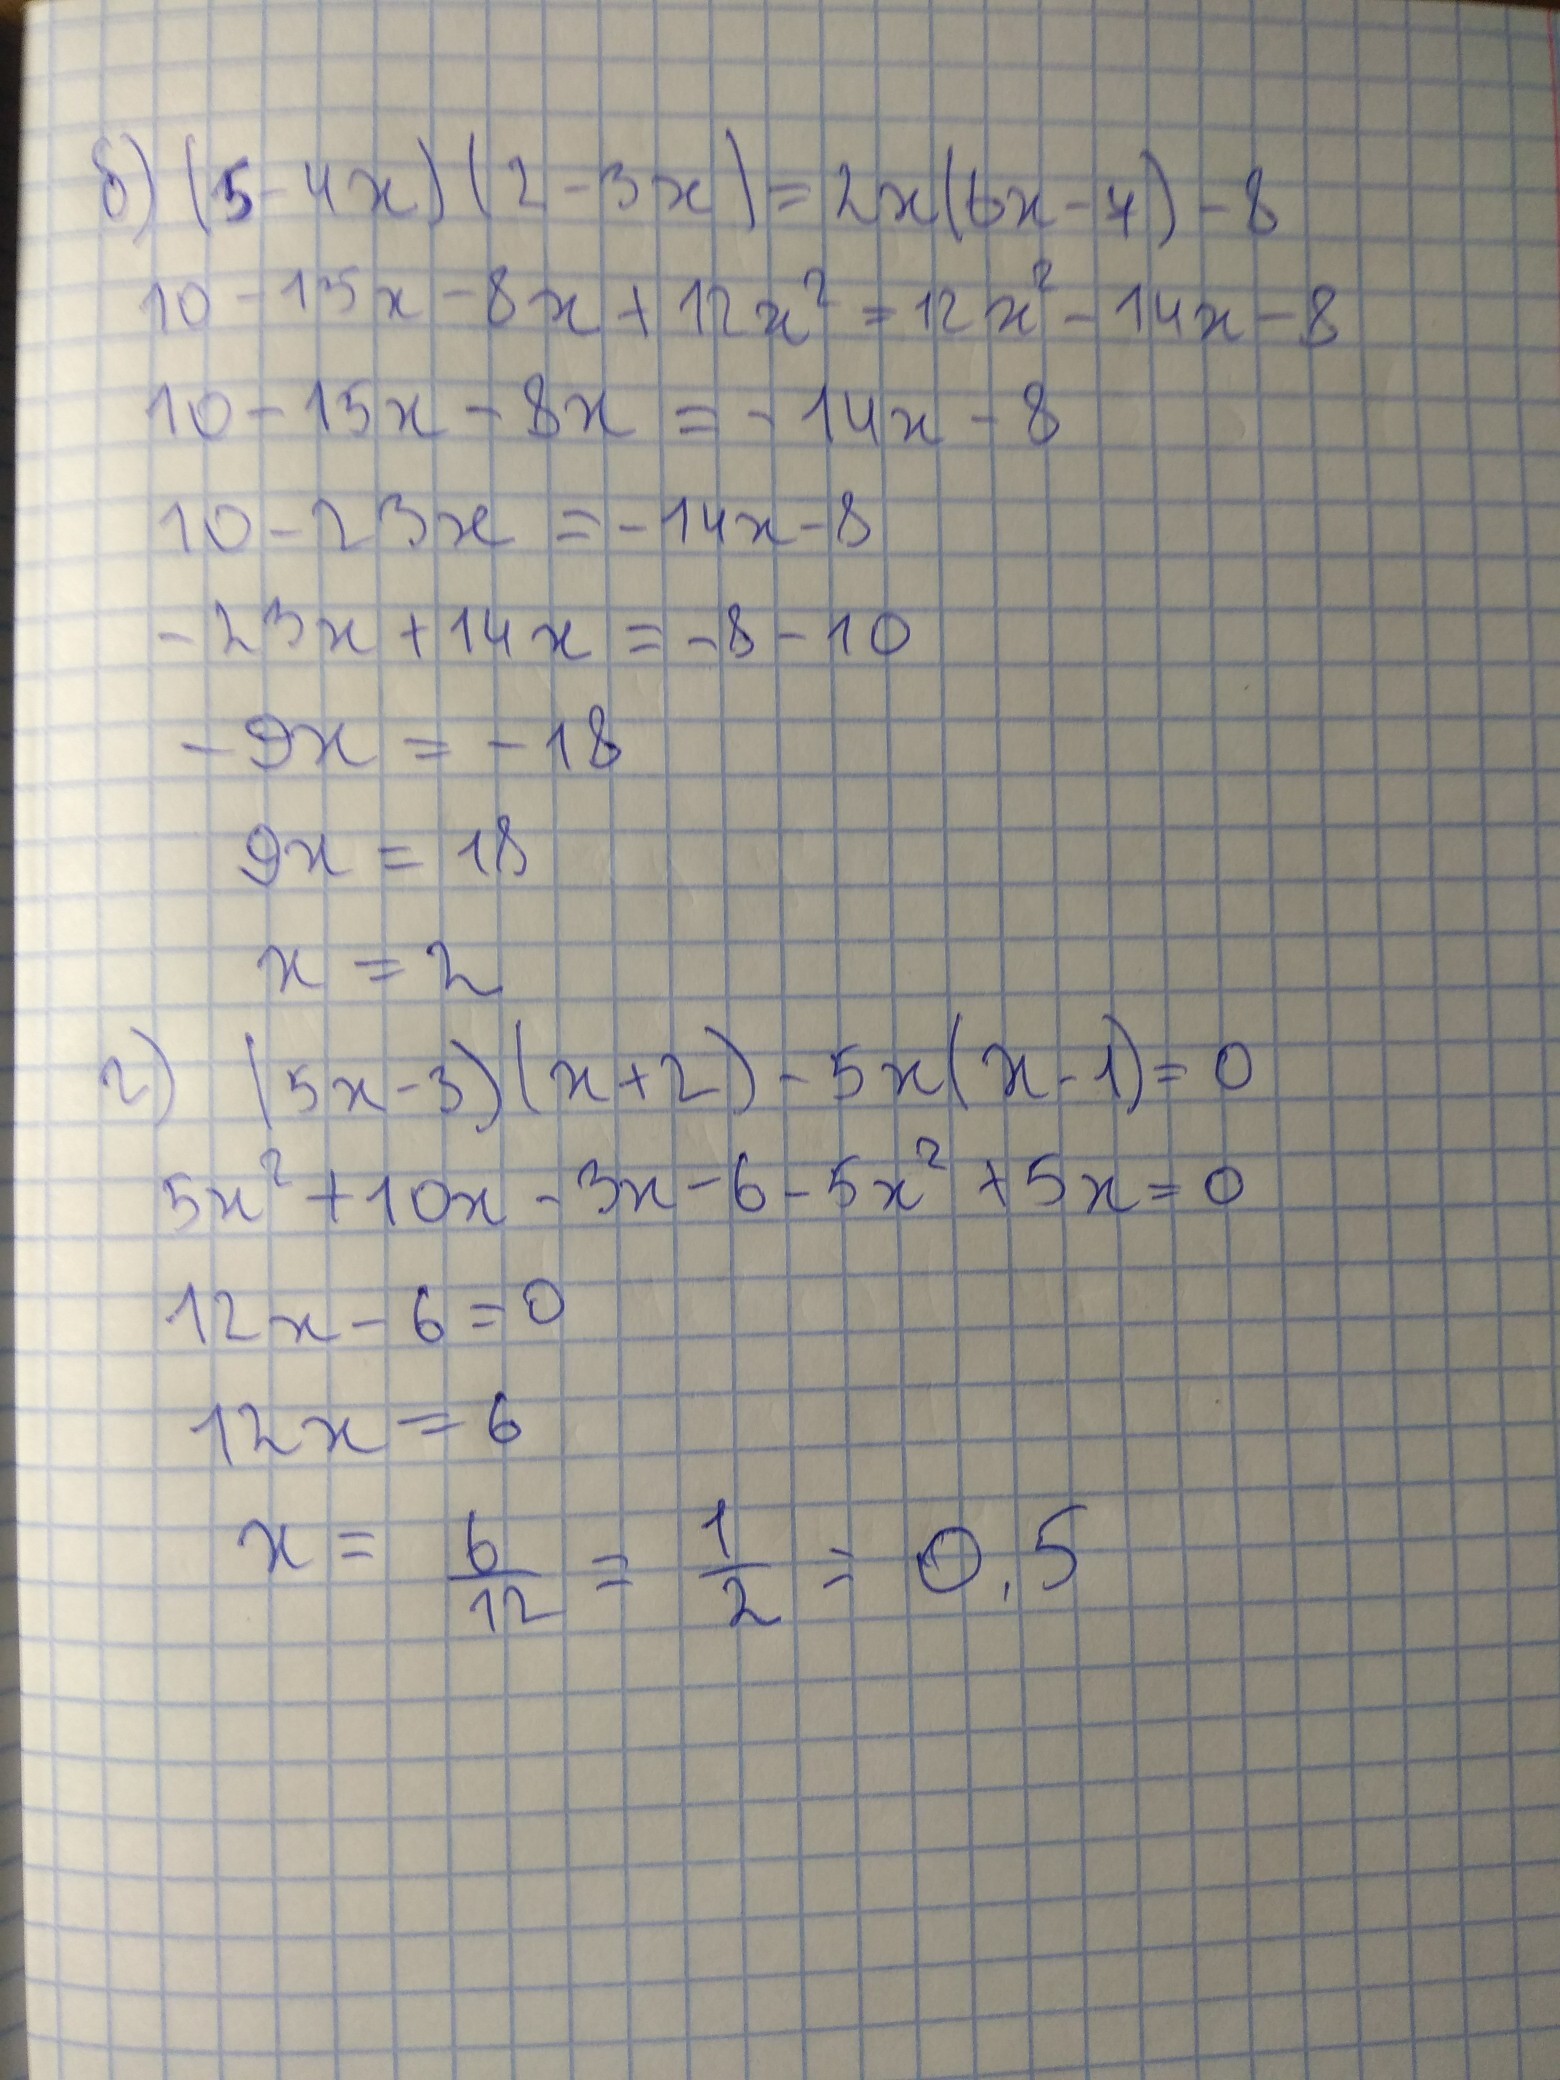 б) (5-4x)(2-3x)=2x(6x-7)-8
10-15x-8x+12x²=12x²-14x-8
10-15x-8x=-14x-8
10-23x=-14x-8
-23x+14x=-8-10
-9x=-18
9x=18
x=2
г) (5x-3)(x+2)-5x(x-1)=0
5x²+10x-3x-6-5x²+5x=0
12x-6=0
12x=6
x=6/12=1/2=0,5